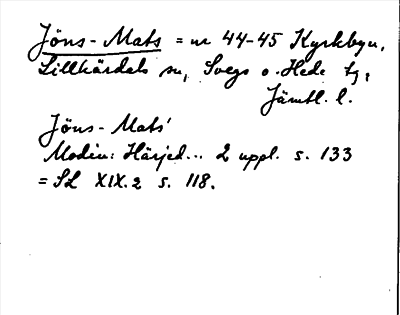 Jöns-Mats = nr 44-45 Kyrkbyn,
Lillhärdals sn, Svegs o. Hede tg,
Jämtl. l.
Jöns-Mats'
Modin: Härjed... 2 uppl. s. 133
= SL XIX.2 s. 118.